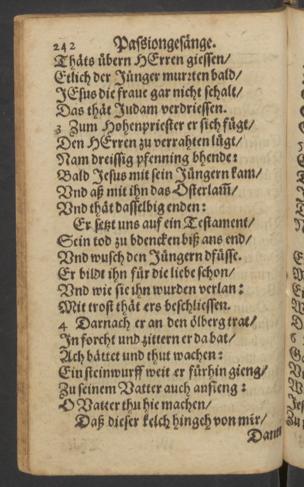 242 Passiongesänge.
Thäts übern HErren giessen/
Etlich der Jünger murrten bald/
JEsus die fraue gar nicht schalt/
Das thät Judam verdriessen.
3 Zum Hohenpriester er sich fügt/
Den HErren zu verrahten lügt/
Nam dreissig pfenning bhende:
Bald Jesus mit sein Jüngern kam/
Vnd aß mit ihn das Osterlam̃/
Vnd thät dasselbig enden:
Er setzt uns auf ein Testament/
Sein tod zu bdencken biß ans end/
Vnd wusch den Jüngern dfüsse.
Er bildt ihn für die liebe schon/
Vnd wie sie ihn wurden verlan:
Mit trost thät ers beschliessen.
4 Darnach er an den ölberg trat/
In forcht und zittern er da bat/
Ach bättet und thut wachen:
Ein steinwurff weit er fürhin gieng/
Zu seinem Vatter auch anfieng:
O Vatter thu hie machen/
Daß dieser kelch hingeh von mir/
Dann